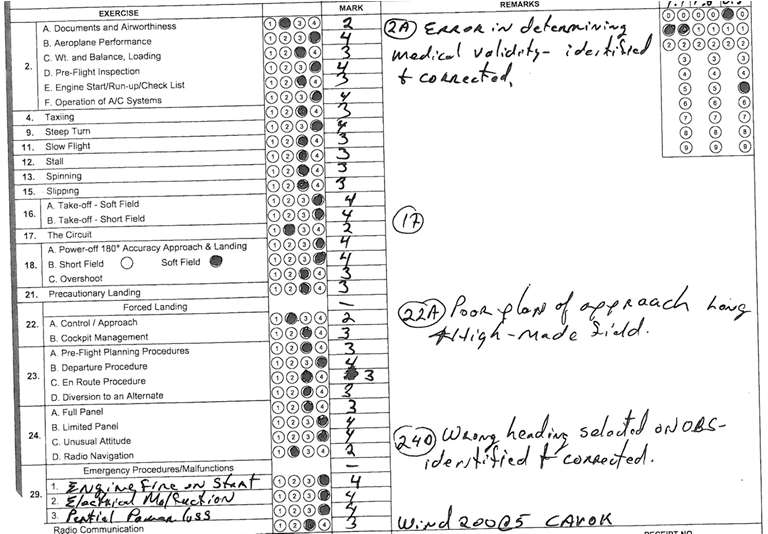 EXERCISE MARK REMARKS
2. A. Documents and Airworthiness ① ③ ④ 2
B. Aeroplane Performance ① ② ③ 4
C. Wt. and Balance, Loading ① ② ④ 3
D. Pre-Flight Inspection ① ② ③ 4
E. Engine Start/Run-up/Check List ① ② ④ 3
F. Operation of A/C Systems ① ② ③ 4
4. Taxiing ① ② ④ 3
9. Steep Turn ① ② ③ 4
11. Slow Flight ① ② ④ 3
12. Stall ① ② ④ 3
13. Spinning ① ② ④ 3
15. Slipping ① ② ④ 3
16. A. Take-off - Soft Field ① ② ③ 4
B. Take-off - Short Field ① ② ③ 4
17. The Circuit ① ③ ④ 2
18. A. Power-off 180° Accuracy Approach & Landing ① ② ③ 4
B. Short Field Soft Field ① ② ③ 4
C. Overshoot ① ② ④ 3
21. Precautionary Landing ① ② ④ 3
Forced Landing —
22. A. Control / Approach ① ③ ④ 2
B. Cockpit Management ① ② ④ 3
23. A. Pre-Flight Planning Procedures ① ② ④ 3
B. Departure Procedure ① ② ③ 4
C. En Route Procedure ① ② ④ 3
D. Diversion to an Alternate ① ② ④ 3
24. A. Full Panel ① ② ④ 3
B. Limited Panel ① ② ③ 4
C. Unusual Attitude ① ② ③ 4
D. Radio Navigation ① ③ ④ 2
Emergency Procedures/Malfunctions —
29. 1. Engine Fire on Start ① ② ③ 4
2. Electrical Malfuction ① ② ③ 4
3. Partial Power loss ① ② ③ 4
Radio Communication ① ② ④ 3
2A Error in determining
medical validity - identified
& corrected.
17
22A Poor plan of approach long
High - made field.
24D Wrong heading selected on OBS -
identified & corrected.
Wind 200@5 CAVOK